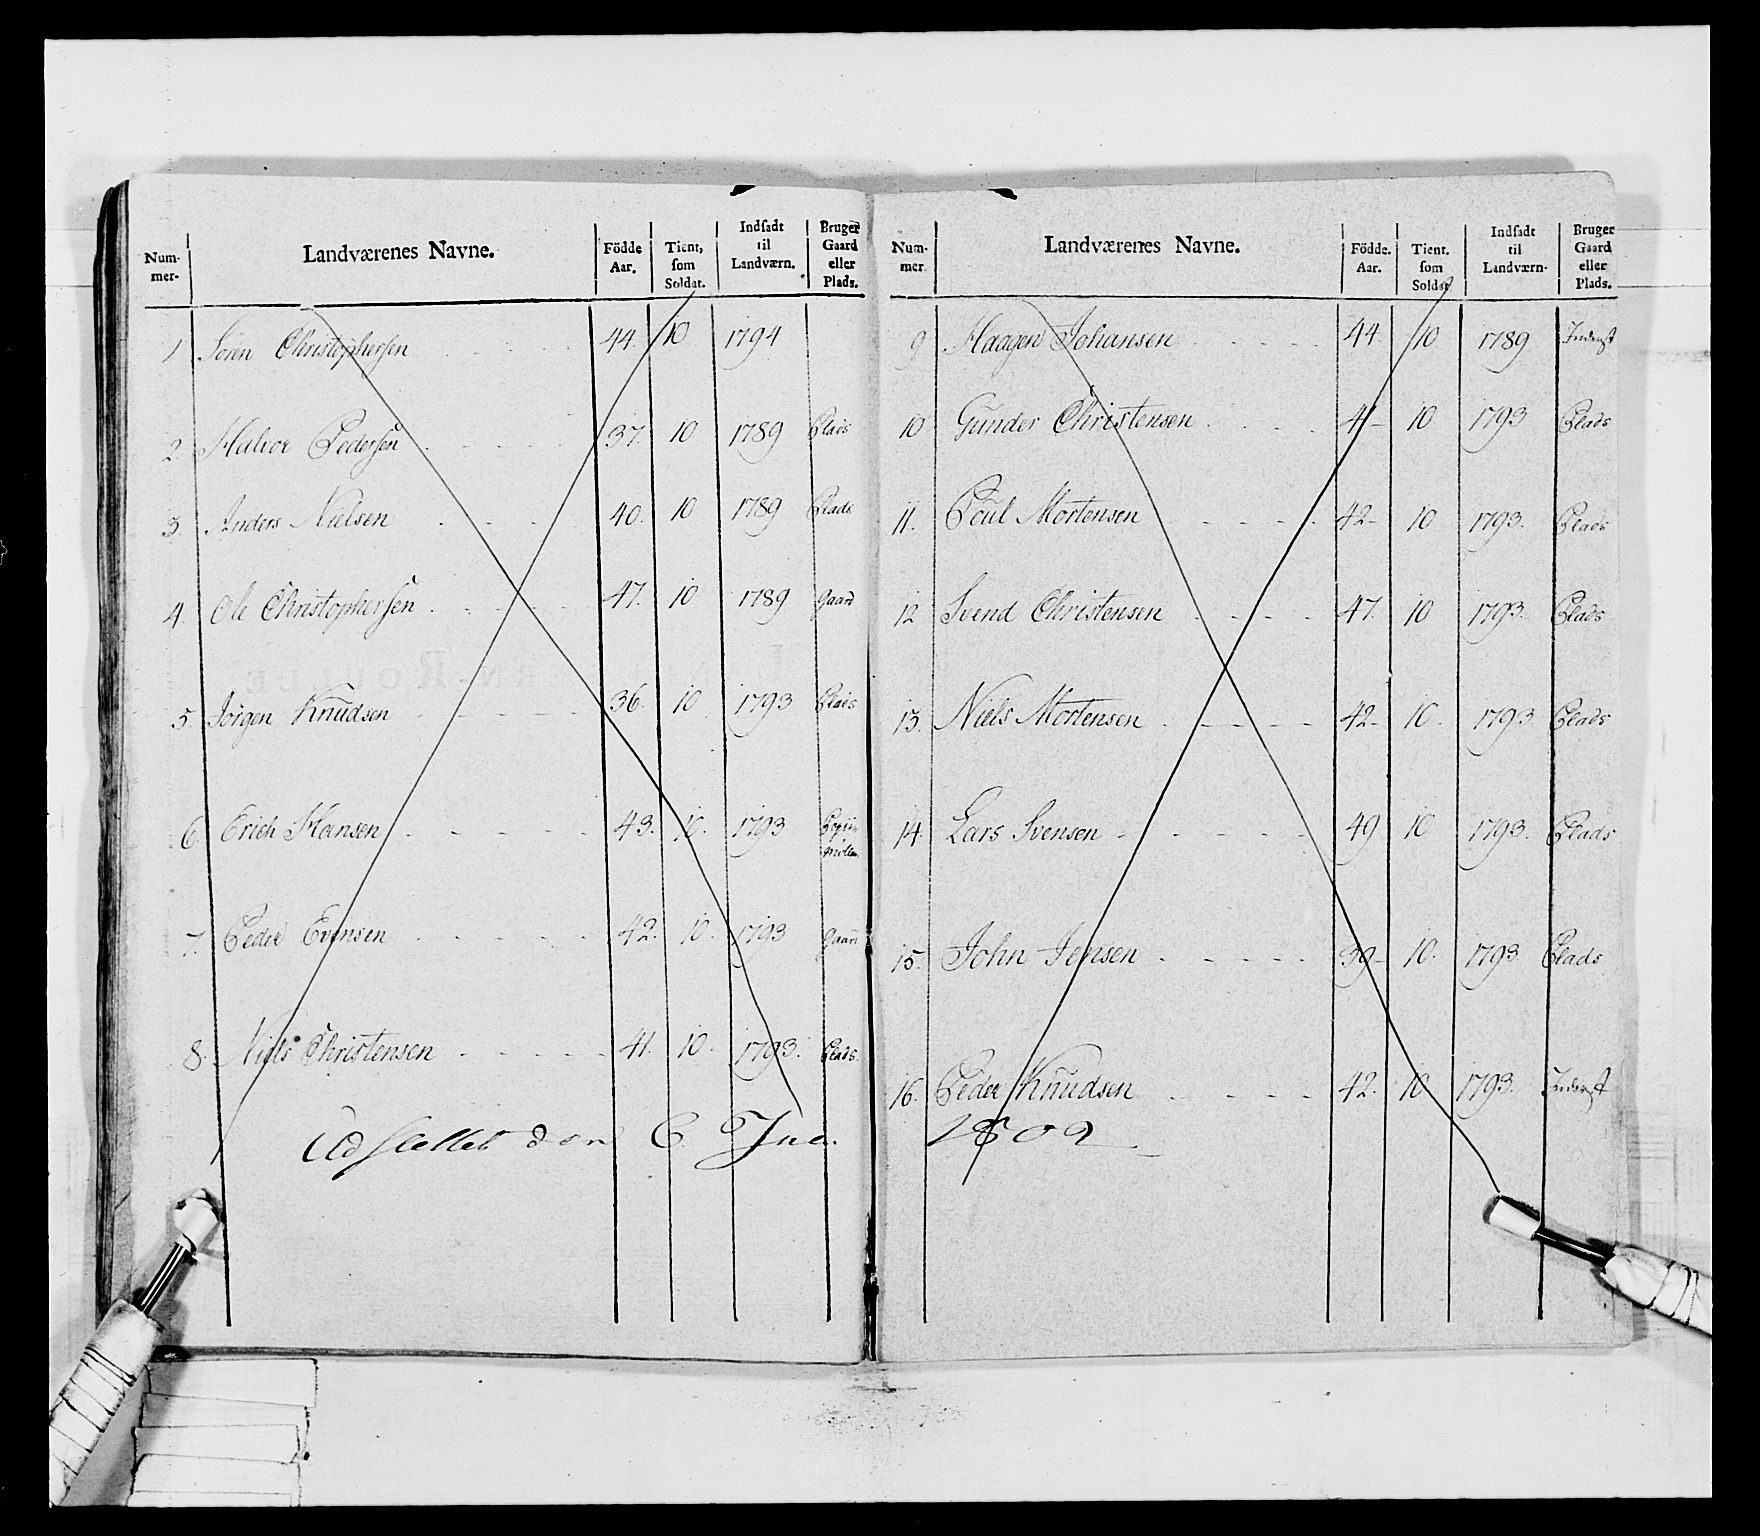 Num-mer. Landværenes Navne. Födde Aar. Tient, som Soldat. Indsadt til Landværn. Bruger Gaard eller Plads.
1 Sörn Christophersen 44. 10 1794
2. Halvor Pedersen 37. 10 1789 Plads
3. Anders Nielsen 40. 10 1789 Plads
4. Ole Christophersen 47. 10 1789 Gaard
5. Jörgen Knudsen 36. 10 1793 Plads
6. Erich Hansen 43. 10. 1793
7. Peder Evensen 42. 10. 1793 Gaard
8. Niels Christensen 41. 10. 1793. Plads.
Num-mer. Landværenes Navne. Födde. Aar. Tient. som Soldat Indsadt til Landværn- Bruger Gaard eller Plads.
9 Haagen Johansen 44. 10 1789 Inderst
10 Gunder Christensen 41- 10 1793 Plads
11. Poul Mortensen 42- 10 1793. Plads
12 Svend Christensen 47. 10 1793. Plads
13. Niels Mortensen 42- 10. 1793 Plads
14. Lars Svensen 49 10 1793. Plads
15. John Jensen 39- 10. 1793 Plads
16. Peder Knudsen 42. 10 1793. Inderst
Udslettet den 6. Jua. 1809